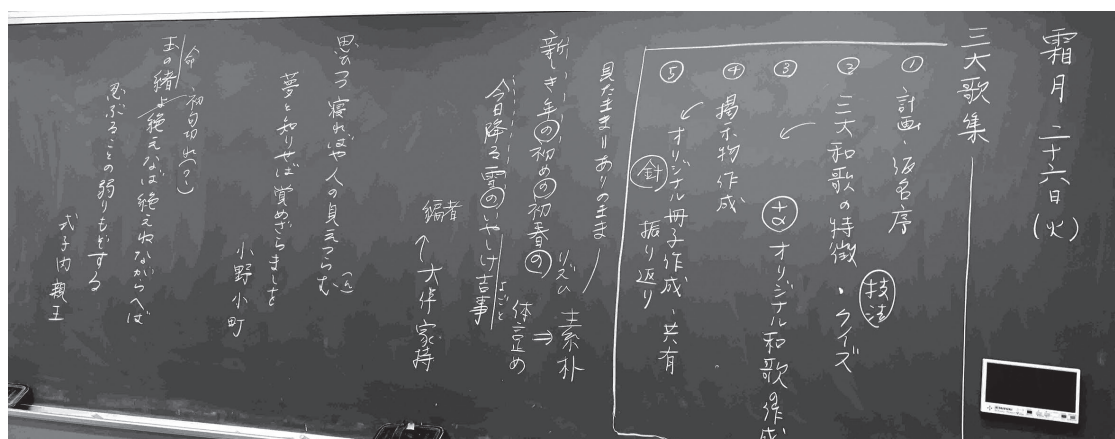 霜月 二十六日(火)
三大歌集
① 計画・仮名序
② 三大和歌の特徴・クイズ
技法
③ +α オリジナル和歌の作成
④ 掲示物作成
⑤ オリジナル冊子作成・共有
針 振り返り
見たまま ありのまま
リズム 素朴
新しき年の初めの初春の
⇒
体言止め
今日降る雪のいやしけ吉事
よごと
編者
↑大伴家持
思ひつつ寝ればや人の見えつらむ
(ん)
夢と知りせば覚めざらましを
小野小町
命 初句切れ
玉の緒よ絶えなば絶えねながらへば
忍ぶることの弱りもぞする
式子内親王